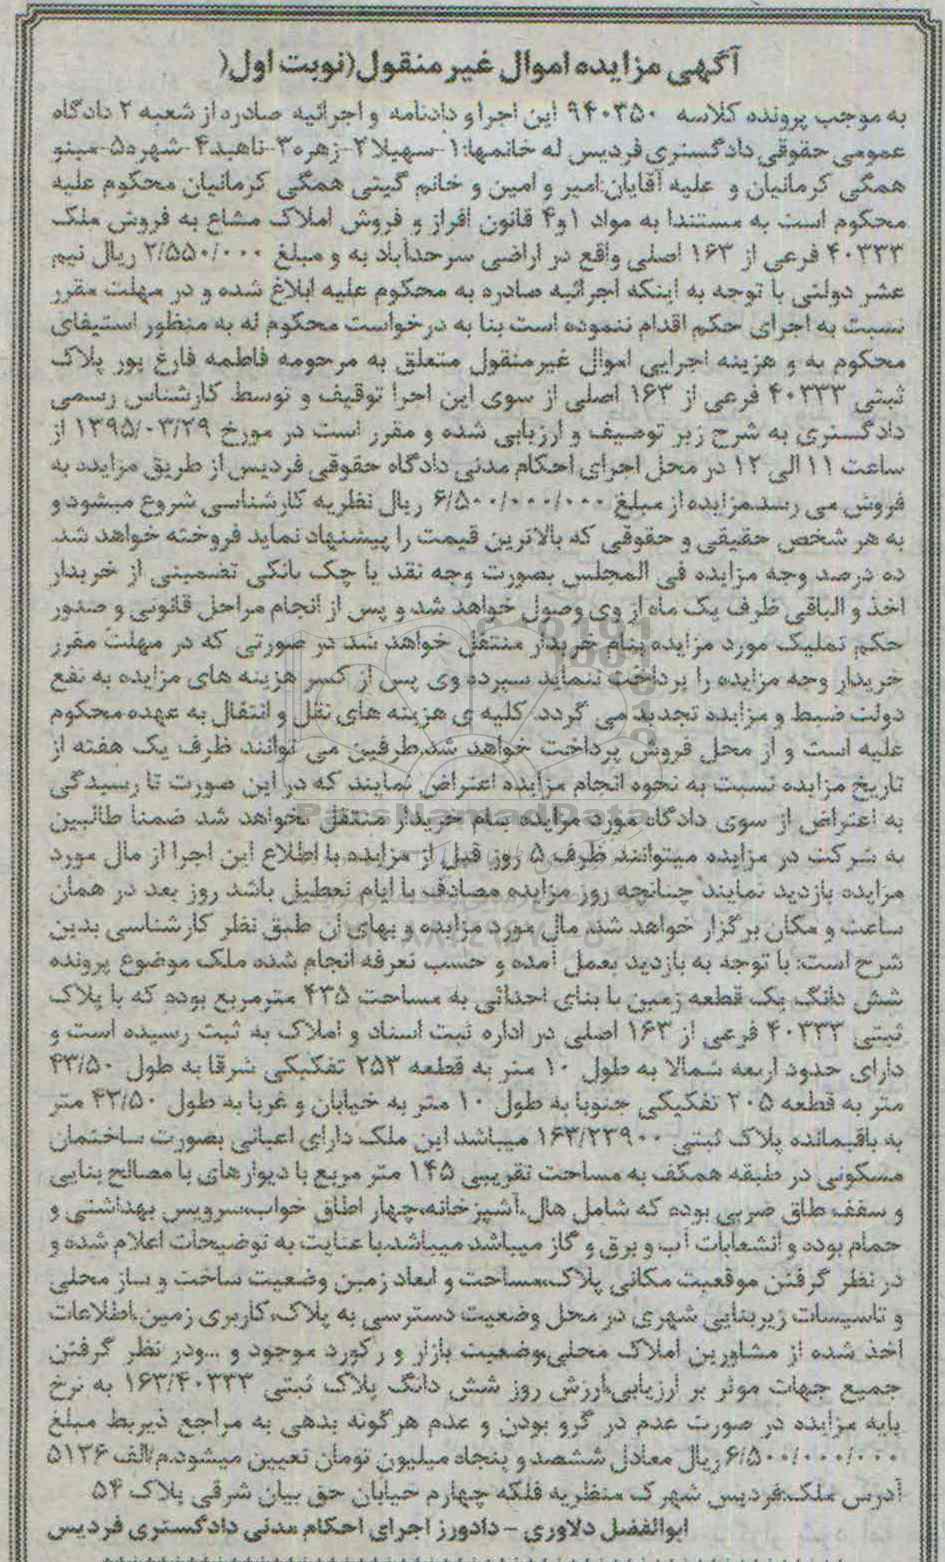 آگهی مزایده اموال غیر منقول(نوبت اول(
به موجب پرونده کلاسه ۹۴۰۳۵۰ این اجرا و دادنامه و اجرائیه صادره از شعبه ۲ دادگاه
عمومی حقوقی دادگستری فردیس له خانمها:۱-سهیلا۲-زهره۳-ناهید۴-شهره۵-مینو
همگی کرمانیان و علیه آقایان:امیر و امین و خانم گیتی همگی کرمانیان محکوم علیه
محکوم است به مستندا به مواد ۱و۴ قانون افراز و فروش املاک مشاع به فروش ملک
۴۰۳۳۳ فرعی از ۱۶۳ اصلی واقع در اراضی سرحدآباد به و مبلغ ۲/۵۵۰/۰۰۰ ریال نیم
عشر دولتی با توجه به اینکه اجرائیه صادره به محکوم علیه ابلاغ شده و در مهلت مقرر
نسبت به اجرای حکم اقدام ننموده است بنا به درخواست محکوم له به منظور استیفای
محکوم به و هزینه اجرایی اموال غیرمنقول متعلق به مرحومه فاطمه فارغ پور پلاک
ثبتی ۴۰۳۳۳ فرعی از ۱۶۳ اصلی از سوی این اجرا توقیف و توسط کارشناس رسمی
دادگستری به شرح زیر توصیف و ارزیابی شده و مقرر است در مورخ ۱۳۹۵/۰۳/۲۹ از
ساعت ۱۱ الی ۱۲ در محل اجرای احکام مدنی دادگاه حقوقی فردیس از طریق مزایده به
فروش می رسد.مزایده از مبلغ ۶/۵۰۰/۰۰۰/۰۰۰ ریال نظریه کارشناسی شروع میشود و
به هر شخص حقیقی و حقوقی که بالاترین قیمت را پیشنهاد نماید فروخته خواهد شد.
ده درصد وجه مزایده فی المجلس بصورت وجه نقد یا چک بانکی تضمینی از خریدار
اخذ و الباقی ظرف یک ماه از وی وصول خواهد شد و پس از انجام مراحل قانونی و صدور
حکم تملیک مورد مزایده بنام خریدار منتقل خواهد شد در صورتی که در مهلت مقرر
خریدار وجه مزایده را پرداخت ننماید سپرده وی پس از کسر هزینه های مزایده به نفع
دولت ضبط و مزایده تجدید می گردد. کلیه ی هزینه های نقل و انتقال به عهده محکوم
علیه است و از محل فروش پرداخت خواهد شد.طرفین می توانند ظرف یک هفته از
تاریخ مزایده نسبت به نحوه انجام مزایده اعتراض نمایند که در این صورت تا رسیدگی
به اعتراض از سوی دادگاه مورد مزایده بنام خریدار منتقل نخواهد شد ضمنا طالبین
به شرکت در مزایده میتوانند ظرف ۵ روز قبل از مزایده با اطلاع این اجرا از مال مورد
مزایده بازدید نمایند چنانچه روز مزایده مصادف با ایام تعطیل باشد روز بعد در همان
ساعت و مکان برگزار خواهد شد. مال مورد مزایده و بهای آن طبق نظر کارشناسی بدین
شرح است: با توجه به بازدید بعمل آمده و حسب تعرفه انجام شده ملک موضوع پرونده
شش دانگ یک قطعه زمین با بنای احداثی به مساحت ۴۳۵ مترمربع بوده که با پلاک
ثبتی ۴۰۳۳۳ فرعی از ۱۶۳ اصلی در اداره ثبت اسناد و املاک به ثبت رسیده است و
دارای حدود اربعه شمالا به طول ۱۰ متر به قطعه ۲۵۳ تفکیکی شرقا به طول ۴۳/۵۰
متر به قطعه ۲۰۵ تفکیکی جنوبا به طول ۱۰ متر به خیابان و غربا به طول ۴۳/۵۰ متر
به باقیمانده پلاک ثبتی ۱۶۳/۲۳۹۰۰ میباشد این ملک دارای اعیانی بصورت ساختمان
مسکونی در طبقه همکف به مساحت تقریبی ۱۴۵ متر مربع با دیوارهای با مصالح بنایی
و سقف طاق ضربی بوده که شامل هال،آشپزخانه،چهار اطاق خواب،سرویس بهداشتی و
حمام بوده و انشعابات آب و برق و گاز میباشد میباشد.با عنایت به توضیحات اعلام شده و
در نظر گرفتن موقعیت مکانی پلاک،مساحت و ابعاد زمین وضعیت ساخت و ساز محلی
و تاسیسات زیربنایی شهری در محل وضعیت دسترسی به پلاک،کاربری زمین،اطلاعات
اخذ شده از مشاورین املاک محلی،وضعیت بازار و رکورد موجود و ...ودر نظر گرفتن
جمیع جهات موثر بر ارزیابی،ارزش روز شش دانگ پلاک ثبتی ۱۶۳/۴۰۳۳۳ به نرخ
پایه مزایده در صورت عدم در گرو بودن و عدم هرگونه بدهی به مراجع ذیربط مبلغ
۶/۵۰۰/۰۰۰/۰۰۰ریال معادل ششصد و پنجاه میلیون تومان تعیین میشود.م/الف ۵۱۳۶
آدرس ملک:فردیس شهرک منظریه فلکه چهارم خیابان حق بیان شرقی پلاک ۵۴
ابوالفضل دلاوری - دادورز اجرای احکام مدنی دادگستری فردیس